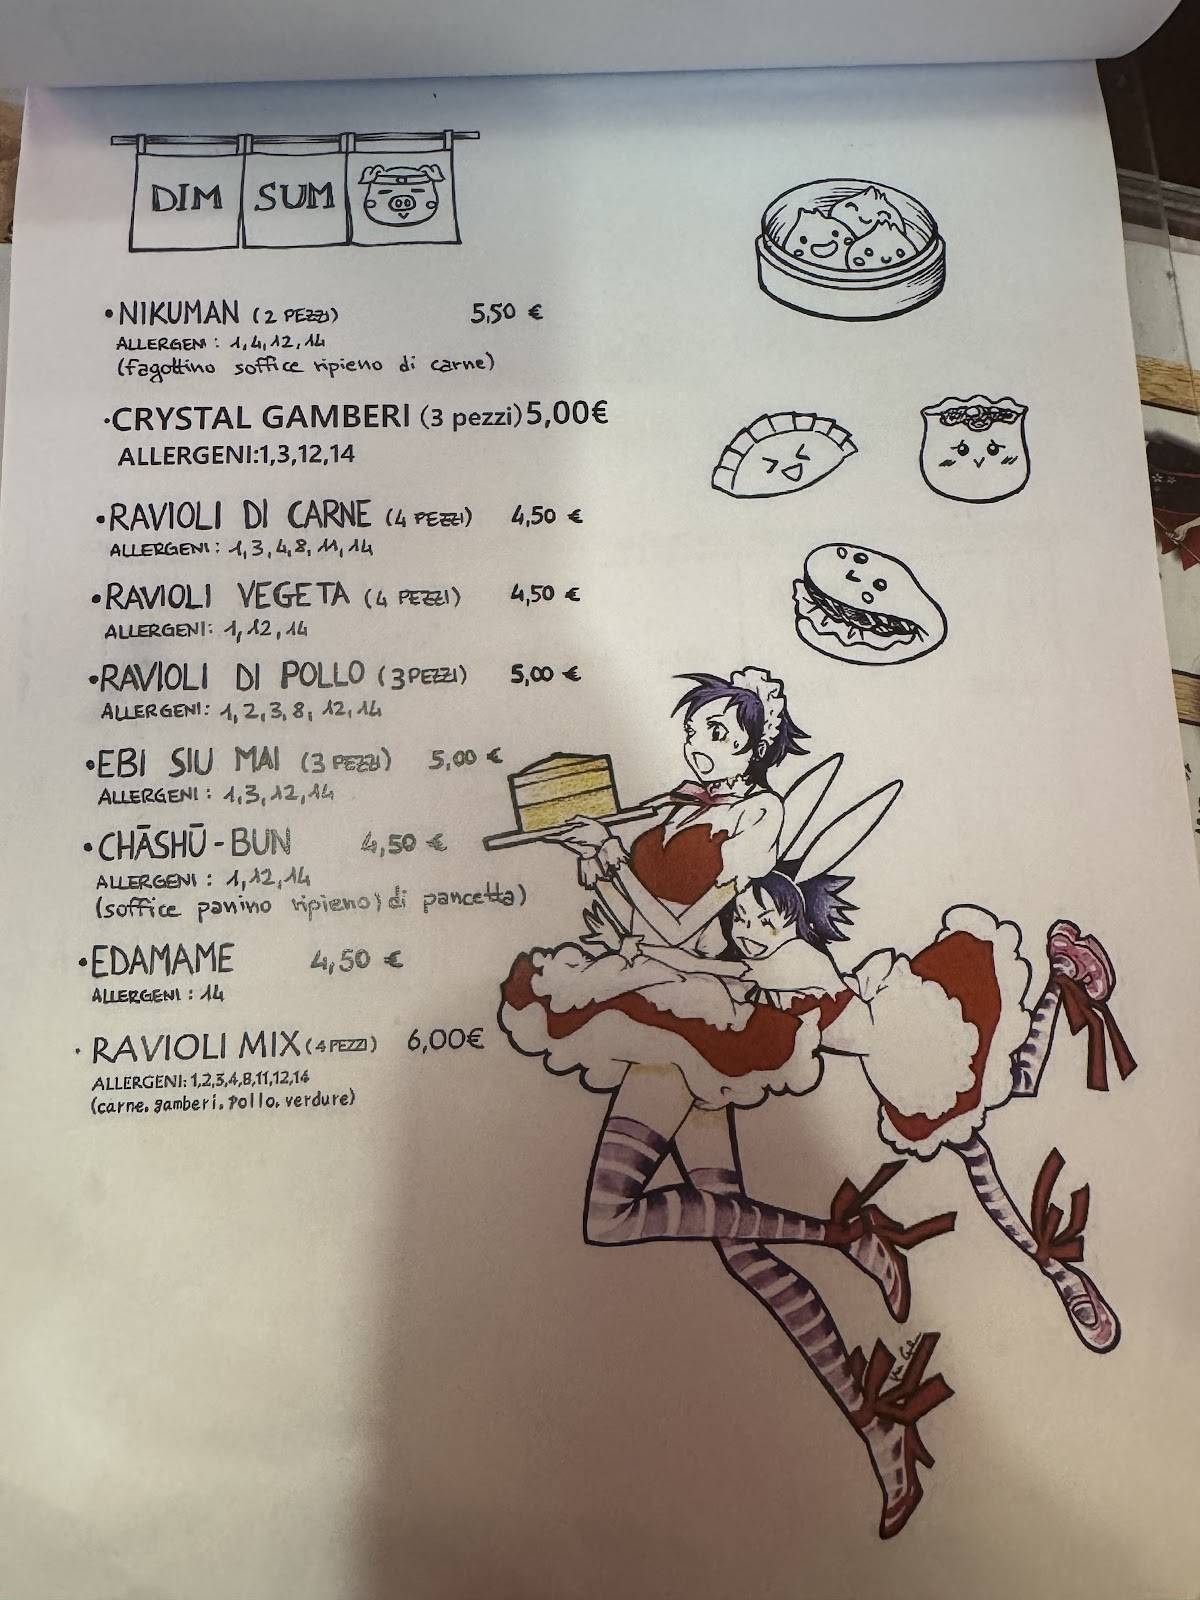 DIM SUM
• NIKUMAN (2 PEZZI) 5,50 €
ALLERGENI: 1,4,12,14
(fagottino soffice ripieno di carne)
·CRYSTAL GAMBERI (3 pezzi) 5,00€
ALLERGENI:1,3,12,14
• RAVIOLI DI CARNE (4 PEZZI) 4,50 €
ALLERGENI: 1,3,4,8,11,14
• RAVIOLI VEGETA (4 PEZZI) 4,50 €
ALLERGENI: 1,12,14
• RAVIOLI DI POLLO (3 PEZZI) 5,00 €
ALLERGENI: 1,2,3,8,12,14
• EBI SIU MAI (3 PEZZI) 5,00 €
ALLERGENI: 1,3,12,14
• CHĀSHŪ-BUN 4,50 €
ALLERGENI: 1,12,14
(soffice panino ripieno) di pancetta)
• EDAMAME 4,50 €
ALLERGENI: 14
· RAVIOLI MIX (4 PEZZI) 6,00€
ALLERGENI: 1,2,3,4,8,11,12,14
(carne, gamberi, pollo, verdure)